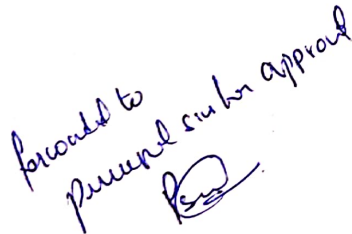 forwarded to
principal sir for approval